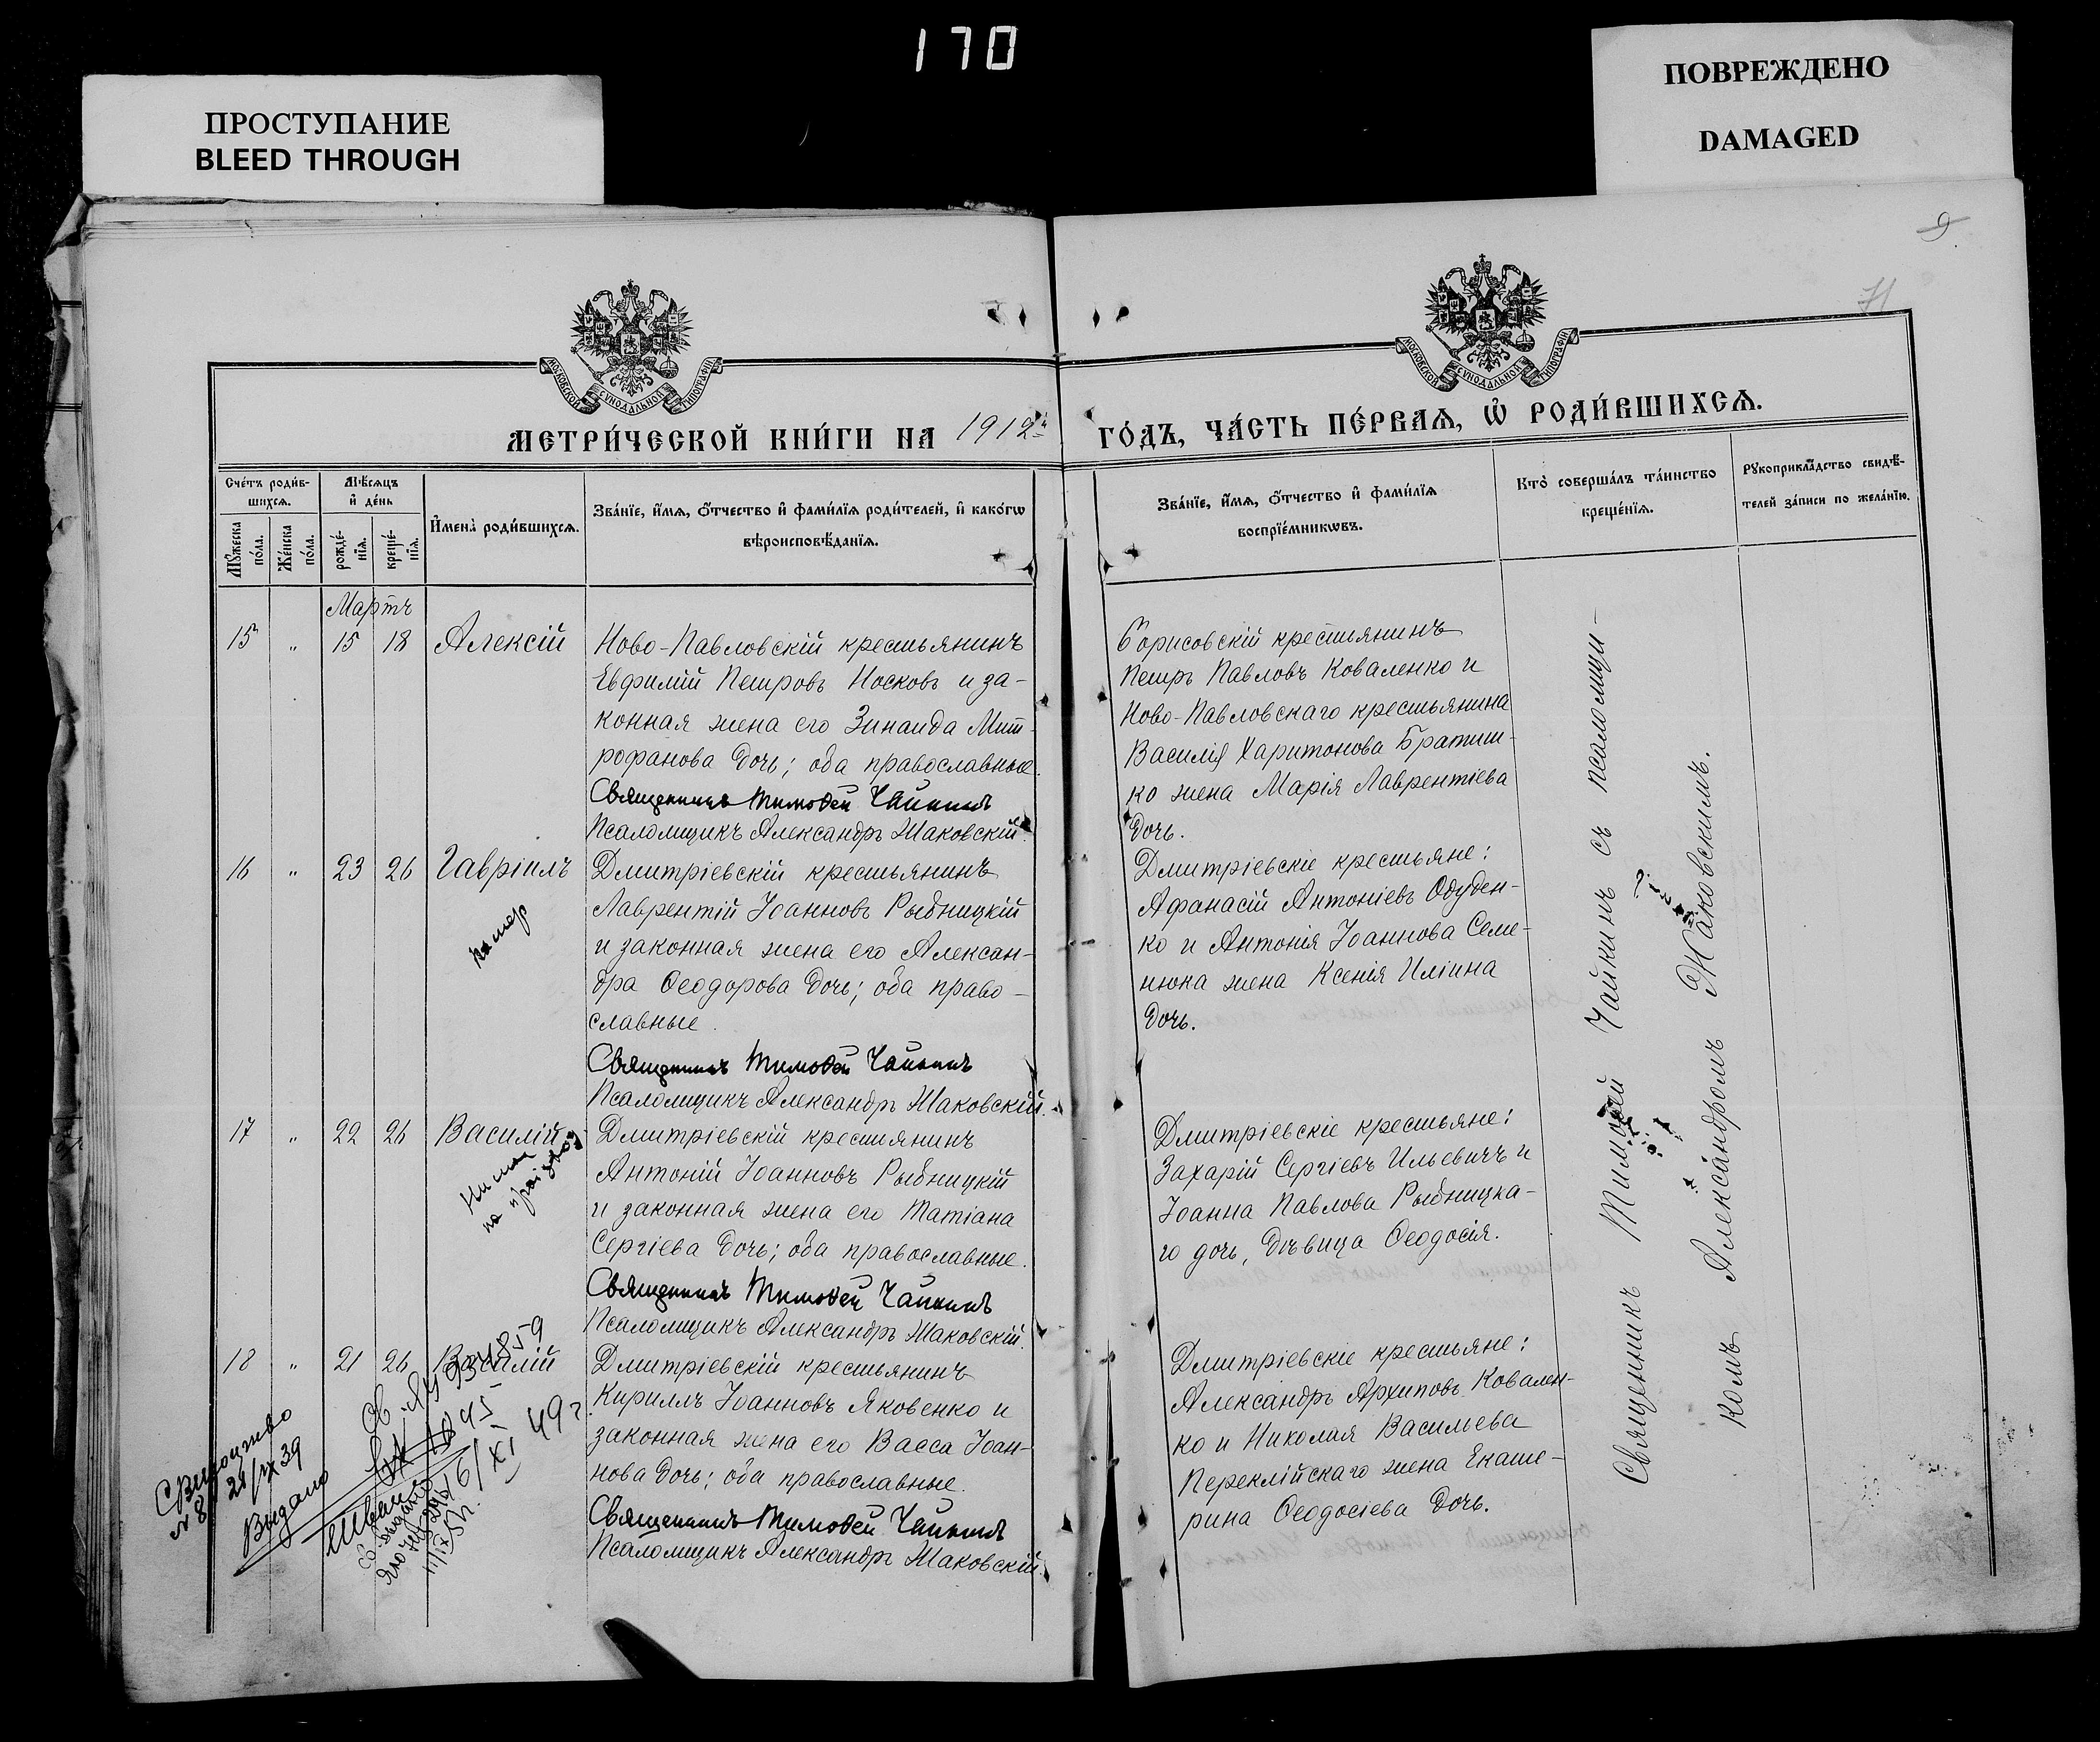 170
ПРОСТУПАНИЕ
BLEED THROUGH
ПОВРЕЖДЕНО
DAMAGED
9
71
МОСКОВСКОЙ СѴНОДАЛЬНОЙ ТИПОГРАФІИ
МОСКОВСКОЙ СѴНОДАЛЬНОЙ ТИПОГРАФІИ
МЕТРИ́ЧЕСКОЙ КНИ́ГИ НА 1912й
ГО́ДЪ, ЧА́СТЬ ПЕ́РВАѦ, Ѽ РОДИ́ВШИХСѦ.
Сче́тъ роди́в-
шихсѧ.
Мꙋ́жеска
по́ла.
Же́нска
по́ла.
Мѣ́сѧцъ
и҆ де́нь
рожде́-
нїѧ.
креще́-
нїѧ.
И҆мена̀ роди́вшихсѧ.
Зва́нїе, и҆́мѧ, ѻ҆́тчество и҆ фами́лїѧ роди́телей, и҆ како́гѡ
вѣроисповѣ́данїѧ.
Зва́нїе, и҆́мѧ, ѻ҆́тчество и҆ фами́лїѧ
воспрїе́мникѡвъ.
Кто̀ соверша́лъ та́инство
креще́нїѧ.
Рꙋкоприкла́дство свидѣ́-
телей за́писи по жела́нїю.
Мартъ
15 " 15 18 Алексій
Ново-Павловскій крестьянинъ
Евфимій Петровъ Носковъ и за-
конная жена его Зинаида Мит-
рофанова дочь; оба православные.
Священникъ Тимоѳей Чайкинъ
Псаломщикъ Александръ Жаковскій.
Борисовскій крестьянинъ
Петръ Павловъ Коваленко и
Ново-Павловскаго крестьянина
Василія Харитонова Братиш-
ко жена Марія Лаврентіева
дочь.
16 " 23 26 Гавріилъ
Дмитріевскій крестьянинъ
Лаврентій Іоанновъ Рыбницкій
и законная жена его Алексан-
дра Ѳеодорова дочь; оба право-
славные.
Священникъ Тимоѳей Чайкинъ
Псаломщикъ Александръ Жаковскій.
Дмитріевскіе крестьяне:
Афанасій Антоніевъ Обуден-
ко и Антонія Іоаннова Семе-
нюка жена Ксенія Иліина
дочь.
17 " 22 26 Василій
Дмитріевскій крестьянинъ
Антоній Іоанновъ Рыбницкій
и законная жена его Татіана
Сергіева дочь; оба православные.
Священникъ Тимоѳей Чайкинъ
Псаломщикъ Александръ Жаковскій.
Дмитріевскіе крестьяне:
Захарій Сергіевъ Ильевичъ и
Іоанна Павлова Рыбницка-
го дочь, дѣвица Ѳеодосія.
18 " 21 26 Василій
Дмитріевскій крестьянинъ
Кириллъ Іоанновъ Яковенко и
законная жена его Васса Іоан-
нова дочь; оба православные.
Священникъ Тимоѳей Чайкинъ
Псаломщикъ Александръ Жаковскій.
Дмитріевскіе крестьяне:
Александръ Архиповъ Ковален-
ко и Николая Васильева
Переклійскаго жена Екате-
рина Ѳеодосіева дочь.
Видано
16/XI 49 г.
Священникъ Тимоѳей Чайкинъ съ псаломщи-
комъ Александромъ Жаковскимъ.